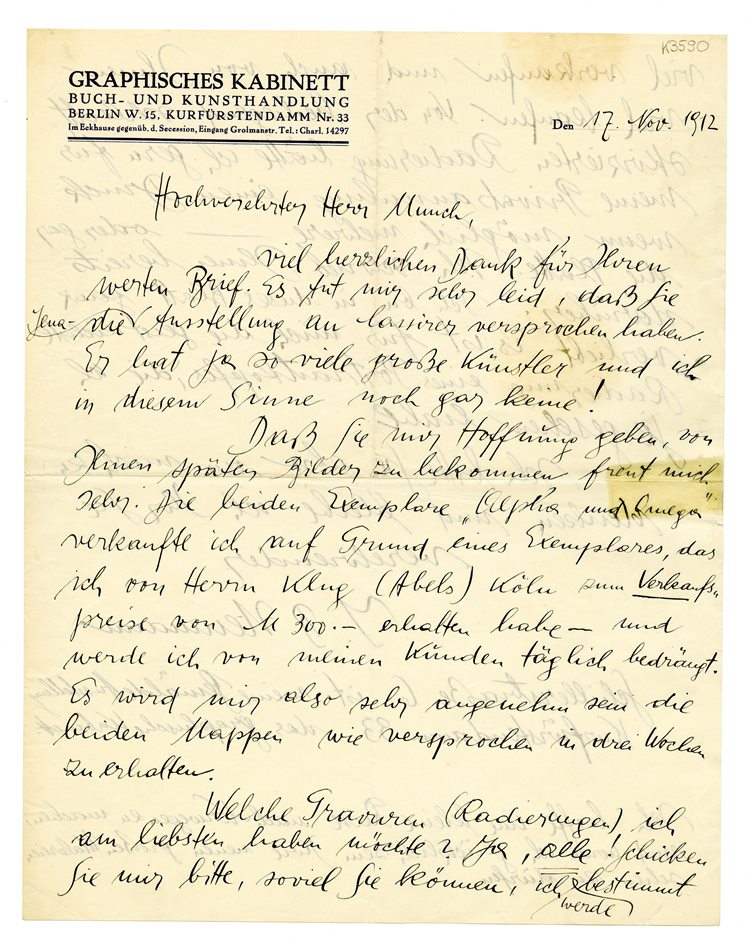 K3590
GRAPHISCHES KABINETT
BUCH- UND KUNSTHANDLUNG
BERLIN W. 15, KURFÜRSTENDAMM Nr. 33
Im Eckhause gegenüb. d. Secession, Eingang Grolmanstr. Tel.: Charl. 14297
Den 17. Nov. 1912
Hochverehrter Herr Munch,
viel herzlichen Dank für Ihren
werten Brief. Es tut mir sehr leid, daß Sie
die Jena-Ausstellung an Cassirer versprochen haben.
Er hat ja so viele große Künstler und ich
in diesem Sinne noch gar keine!
Daß Sie mir Hoffnung geben, von
Ihnen später Bilder zu bekommen freut mich
sehr. Die beiden Exemplare „Alpha und Omega"
verkaufte ich auf Grund eines Exemplares, das
ich von Herrn Klug (Abels) Köln zum Verkaufs-
preise von M 300.— erhalten habe — und
werde ich von meinen Kunden täglich bedrängt.
Es wird mir also sehr angenehm sein die
beiden Mappen wie versprochen in drei Wochen
zu erhalten.
Welche Gravuren (Radierungen) ich
am liebsten haben möchte? Ja, alle! Schicken
Sie mir bitte, soviel Sie können, ich werde bestimmt